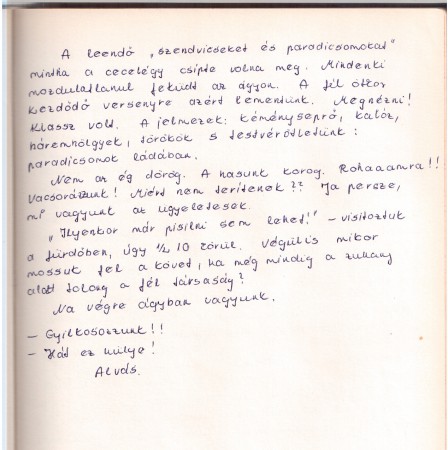 A leendő „szendvicseket és paradicsomokat"
mintha a cecelégy csípte volna meg. Mindenki
mozdulatlanul feküdt az ágyon. A fél ötkor
kezdődő versenyre azért lementünk. Megnézni!
Klassz volt. A jelmezek: kéményseprő, kalóz,
háremhölgyek, törökök s testvérötletünk:
paradicsomok ládában.
Nem az ég dörög. A hasunk korog. Rohaaamra!!
Vacsorázunk! Miért nem terítenek?? Ja persze,
mi vagyunk az ügyeletesek.
„Ilyenkor már pisilni sem lehet!" – visítoztuk
a fürdőben, úgy 1/2 10 körül. Végülis mikor
mossuk fel a követ, ha még mindig a zuhany
alatt tolong a fél társaság?
Na végre ágyban vagyunk.
– Gyilkosozzunk!!
– Hát ez hülye!
Alvás.